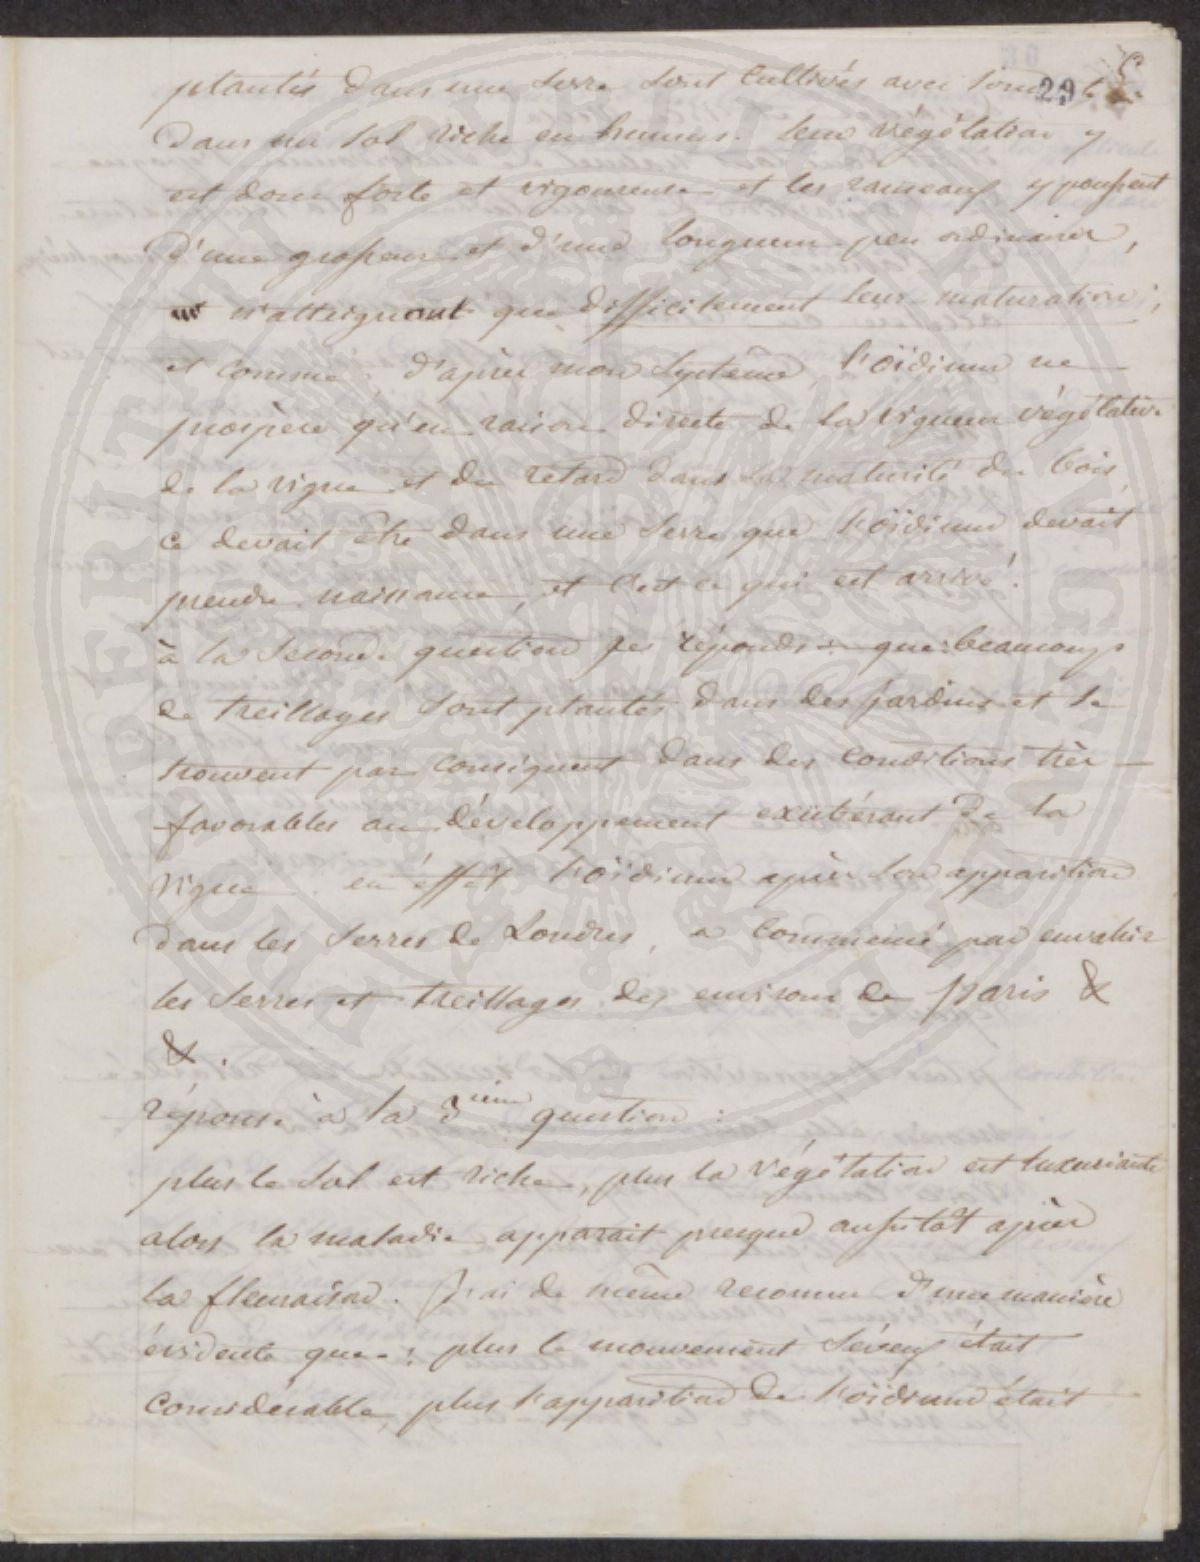 29
plantés dans une serre sont cultivés avec soin et
dans un sol riche en humus. leur végétation y
est donc forte et vigoureuse et les rameaux y poussent
d'une grosseur et d'une longueur peu ordinaires,
n'atteignant que difficilement leur maturation;
et comme, d'après mon système, l'oïdium ne
prospère qu'en raison directe de la vigueur végétative
de la vigne et du retard dans la maturité du bois,
ce devait être dans une serre que l'oïdium devait
prendre naissance, et c'est ce qui est arrivé!
à la seconde question je réponds: que beaucoup
de treillages sont plantés dans des jardins et se
trouvent par conséquent dans des conditions très
favorables au développement exubérant de la
vigne. en éffet l'oïdium après son apparition
dans les serres de Londres, a commencé par envahir
les serres et treillages des environs de paris &
&.
réponse à la 3ième question:
plus le sol est riche, plus la végétation est luxuriante
alors la maladie apparait presque aussitôt après
la fleuraison. J'ai de même reconnu d'une manière
évidente que: plus le mouvement séveux était
considérable, plus l'apparition de l'oïdium était
PROSPERITATI PUBLICAE AUGENDAE